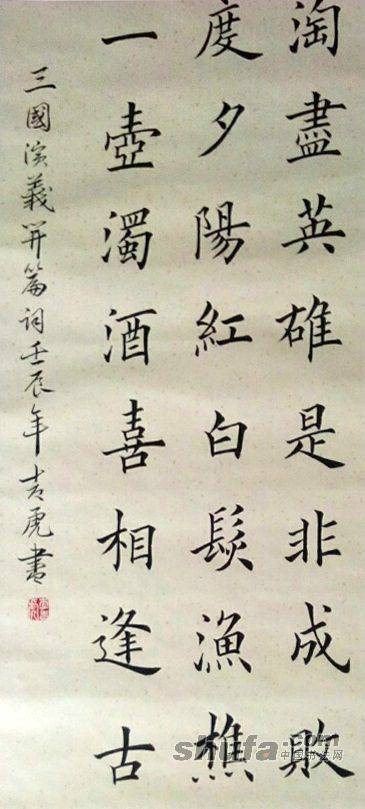 淘盡英雄是非成敗
度夕陽紅白髮漁樵
一壺濁酒喜相逢古
三國演義開篇詞壬辰年吉虎書
shufa.com
中国书法网